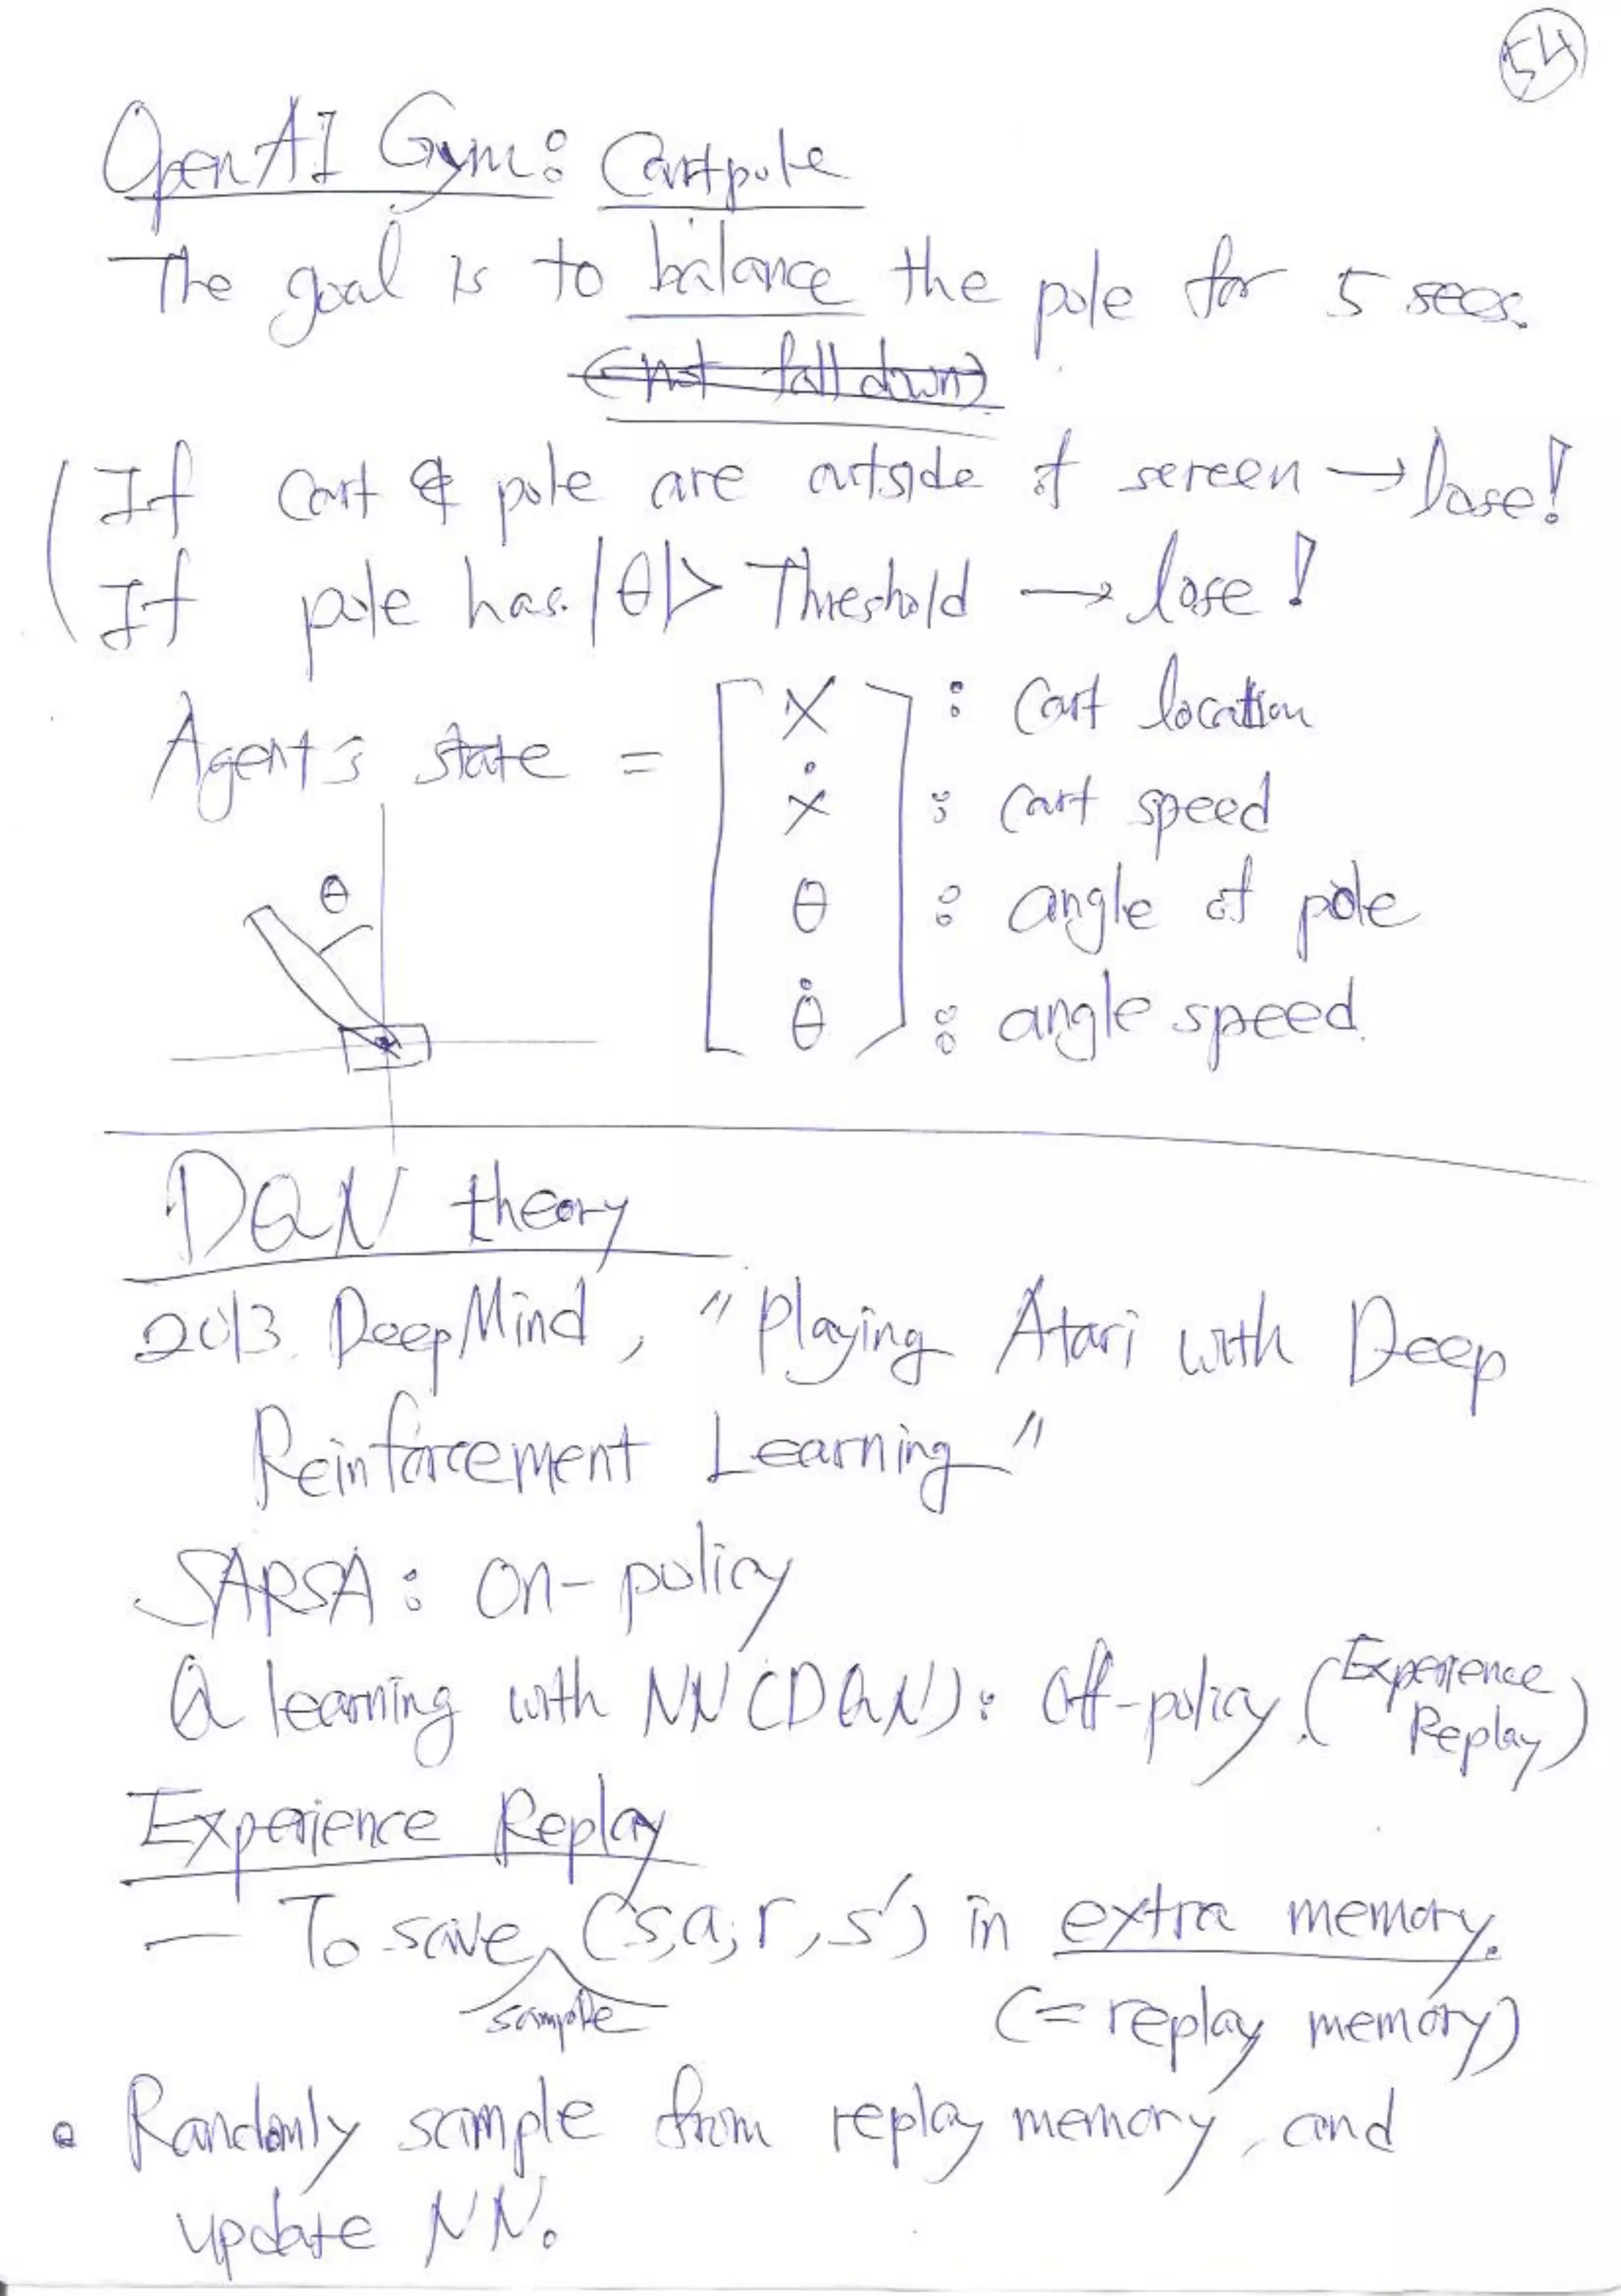 54
OpenAI Gym: Cartpole
The goal is to balance the pole for 5 secs.
(not fall down)
If cart & pole are outside of screen → lose!
If pole has |θ| > Threshold → lose!
Agent's state = [ x : cart location
ẋ : cart speed
θ : angle of pole
θ̇ ] : angle speed.
θ
DQN theory
2013. DeepMind, "Playing Atari with Deep
Reinforcement Learning"
SARSA: on-policy
Q learning with NN (DQN): off-policy. (Experience Replay)
Experience Replay
— To save sample (s, a, r, s') in extra memory.
(= replay memory)
• Randomly sample from replay memory, and
update NN.